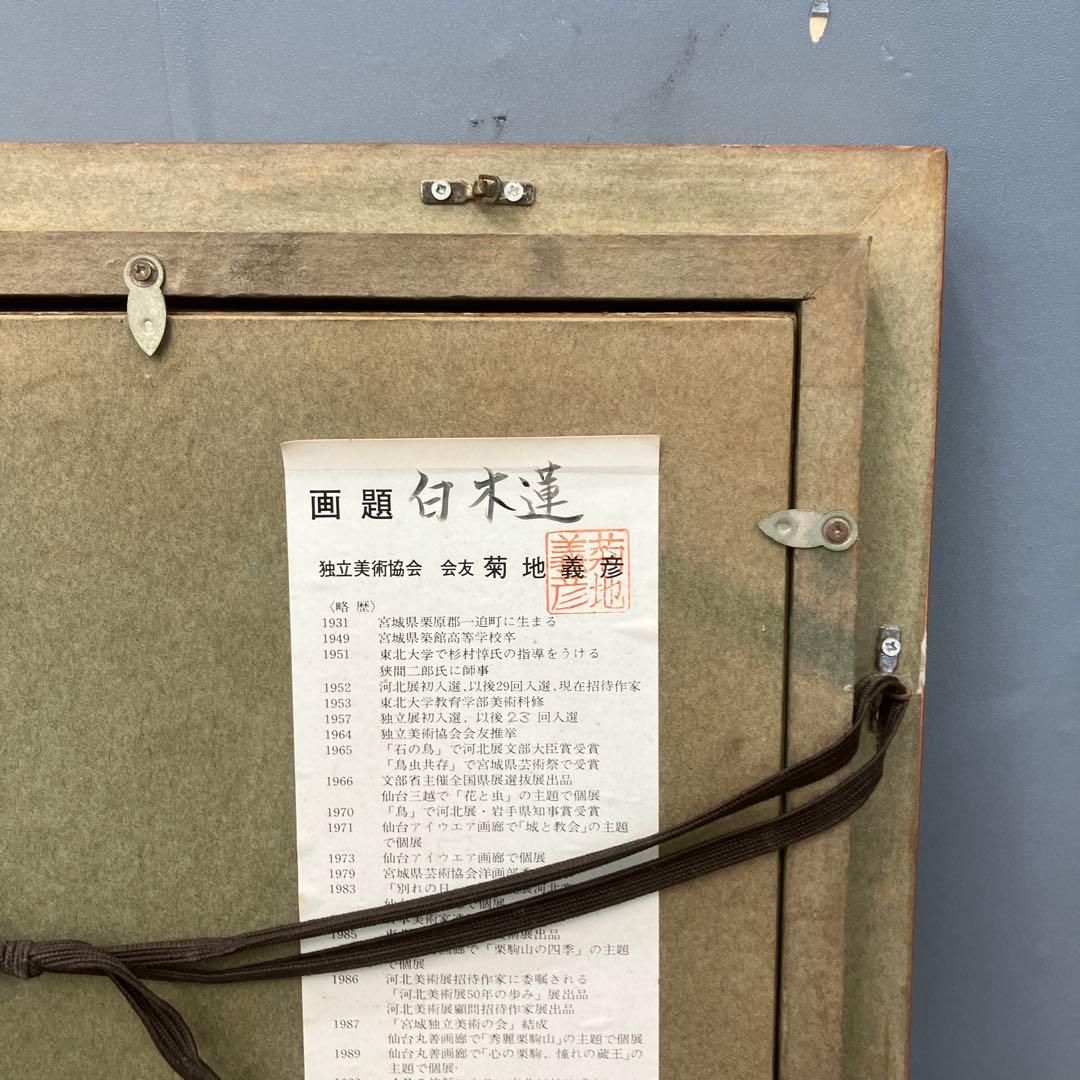 画題 白木蓮
独立美術協会 会友 菊地義彦
菊地義彦
〈略歴〉
1931 宮城県栗原郡一迫町に生まる
1949 宮城県築館高等学校卒
1951 東北大学で杉村惇氏の指導をうける
狭間二郎氏に師事
1952 河北展初入選,以後29回入選,現在招待作家
1953 東北大学教育学部美術科修
1957 独立展初入選、以後23回入選
1964 独立美術協会会友推挙
1965 「石の鳥」で河北展文部大臣賞受賞
「鳥虫共存」で宮城県芸術祭で受賞
1966 文部省主催全国県展選抜展出品
仙台三越で「花と虫」の主題で個展
1970 「鳥」で河北展・岩手県知事賞受賞
1971 仙台アイウエア画廊で「城と教会」の主題
で個展
1973 仙台アイウエア画廊で個展
1979 宮城県芸術協会洋画部
1983 「別れの日
で個展
1985
展出品
画廊で「栗駒山の四季」の主題
で個展
1986 河北美術展招待作家に委嘱される
「河北美術展50年の歩み」展出品
河北美術展顧問招待作家展出品
1987 「宮城独立美術の会」結成
仙台丸善画廊で「秀麗栗駒山」の主題で個展
1989 仙台丸善画廊で「心の栗駒、憧れの蔵王」の
主題で個展・